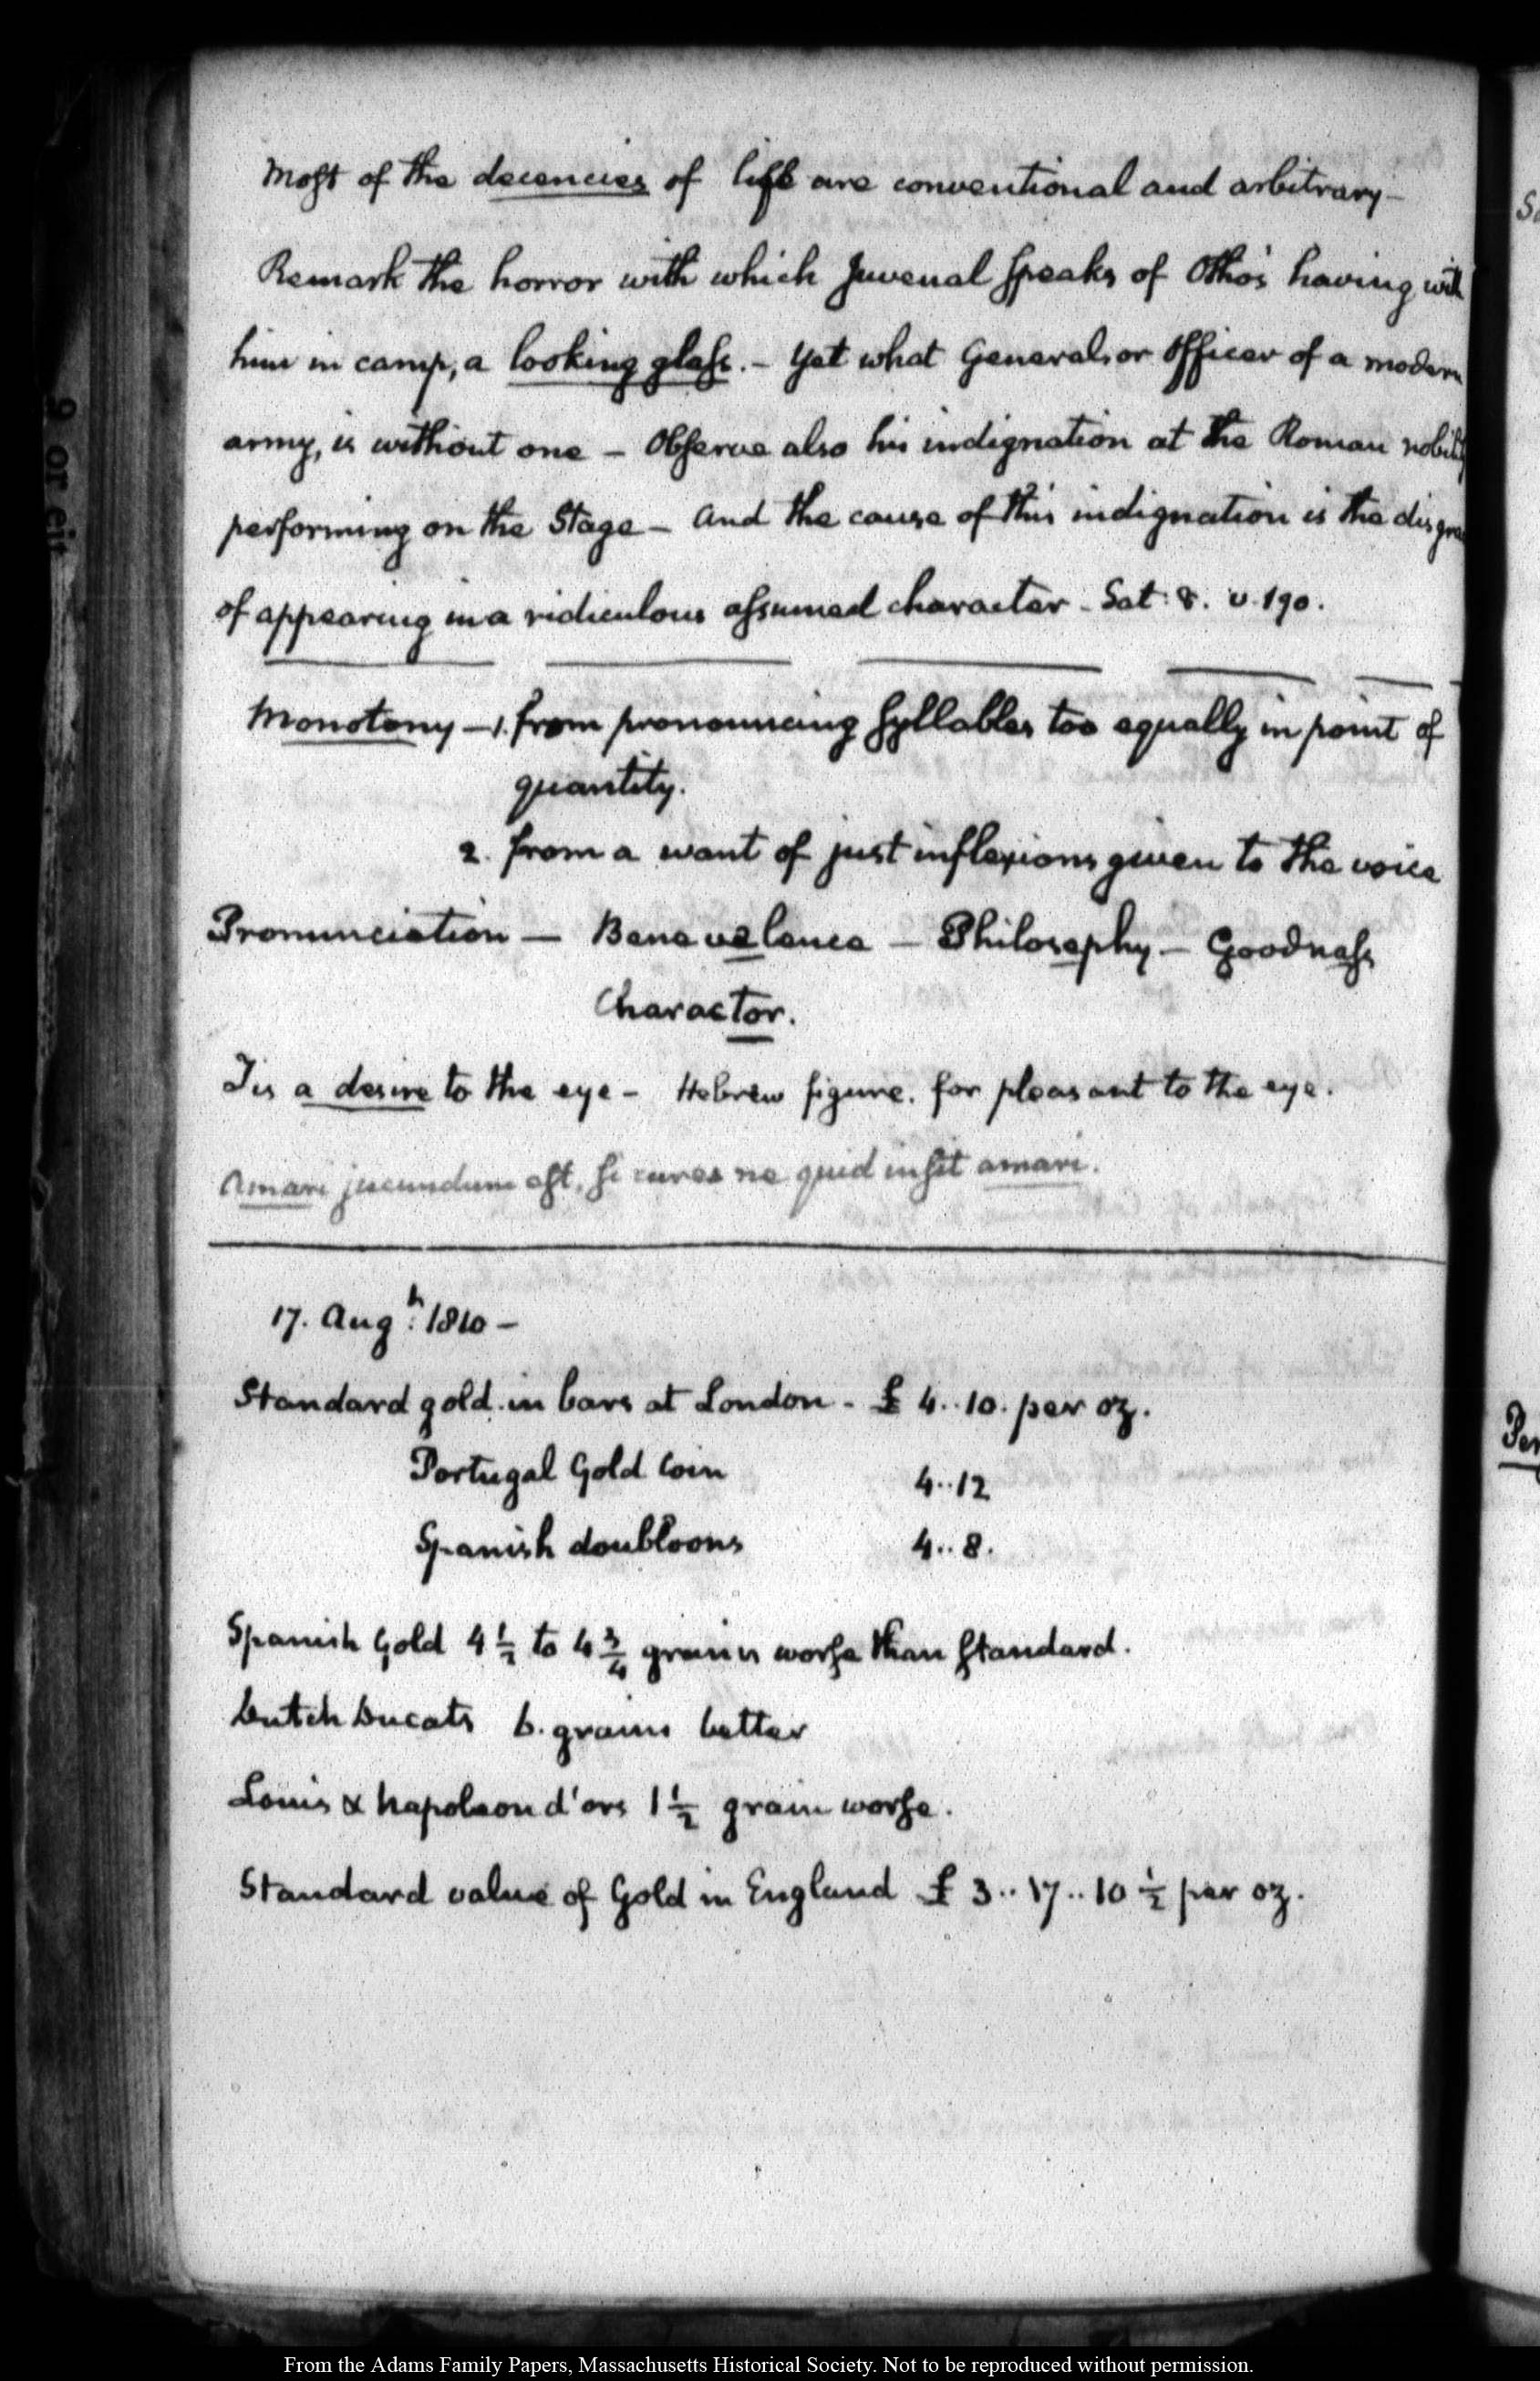 Most of the decencies of life are conventional and arbitrary –
Remark the horror with which Juvenal speaks of Otho's having with
him in camp, a looking glass. – Yet what General, or Officer of a modern
army, is without one – Observe also his indignation at the Roman nobility
performing on the Stage – And the cause of this indignation is the disgra
of appearing in a ridiculous assumed character – Sat: 8. v. 190.
Monotony – 1. from pronouncing syllables too equally in point of
quantity.
2. from a want of just inflexions given to the voice
Pronunciation – Benevelence – Philosephy – Goodnass
Charactor.
Tis a desire to the eye – Hebrew figure. for pleasant to the eye.
Amari jucundum est, si cures ne quid insit amari.
17. Augh: 1810 –
Standard gold in bars at London – £ 4..10. per oz.
Portugal Gold Coin 4..12
Spanish doubloons 4..8.
Spanish Gold 4 1/2 to 4 3/4 grains worse than standard.
Dutch Ducats 6. grains better
Louis & Napoleon d'ors 1 1/2 grain worse.
Standard value of Gold in England £ 3..17..10 1/2 per oz.
9 or eit
Per
From the Adams Family Papers, Massachusetts Historical Society. Not to be reproduced without permission.